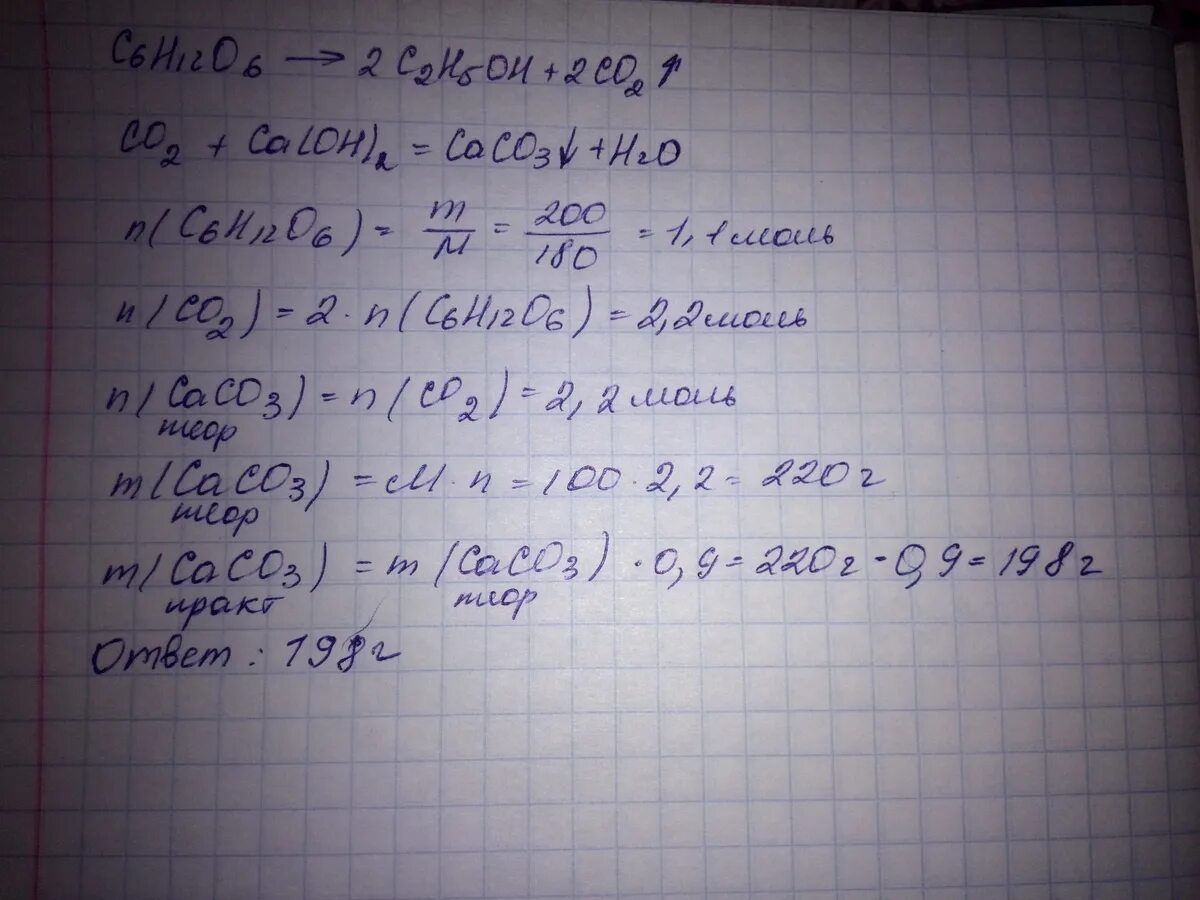 C₆H₁₂O₆ → 2C₂H₅OH + 2CO₂↑
CO₂ + Ca(OH)₂ = CaCO₃↓ + H₂O
n(C₆H₁₂O₆) = m/M = 200/180 = 1,1моль
n(CO₂) = 2·n(C₆H₁₂O₆) = 2,2моль
n(CaCO₃) = n(CO₂) = 2,2моль
теор
m(CaCO₃) = M·n = 100·2,2 = 220г
теор
m(CaCO₃) = m(CaCO₃)·0,9 = 220г·0,9 = 198г
практ теор
Ответ: 198г